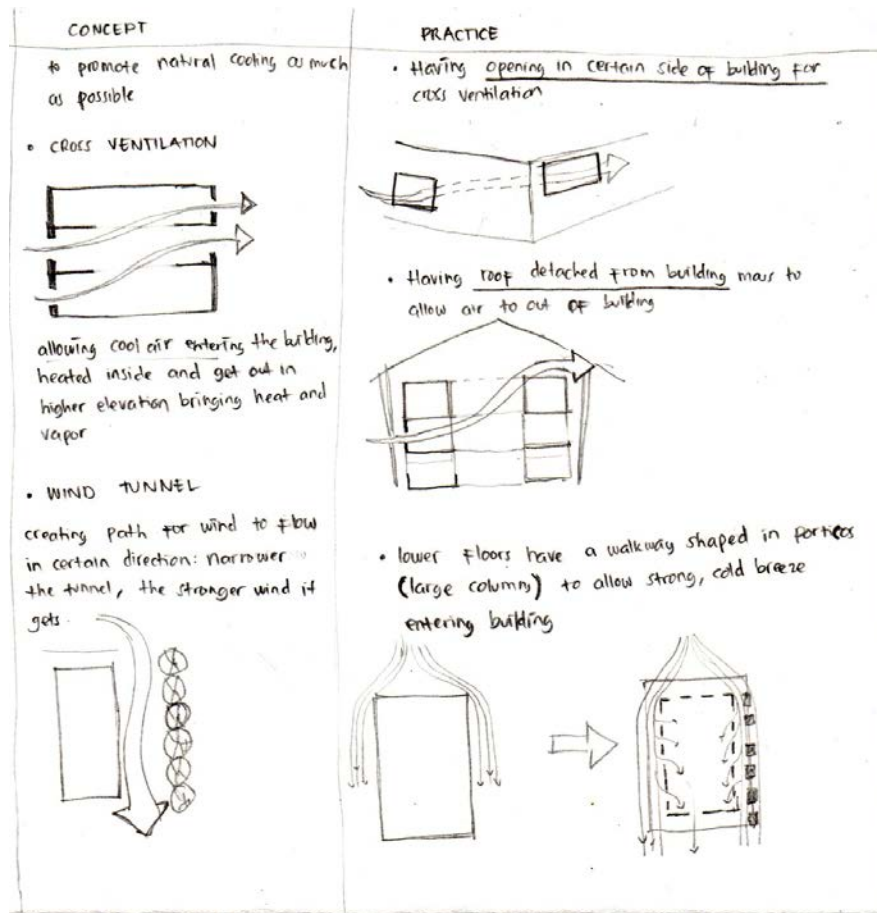 CONCEPT
to promote natural cooling as much
as possible
• CROSS VENTILATION
allowing cool air entering the building,
heated inside and get out in
higher elevation bringing heat and
vapor
• WIND TUNNEL
creating path for wind to flow
in certain direction: narrower
the tunnel, the stronger wind it
gets.
PRACTICE
• Having opening in certain side of building for
cross ventilation
• Having roof detached from building mass to
allow air to out of building
• lower floors have a walkway shaped in porticos
(large column) to allow strong, cold breeze
entering building